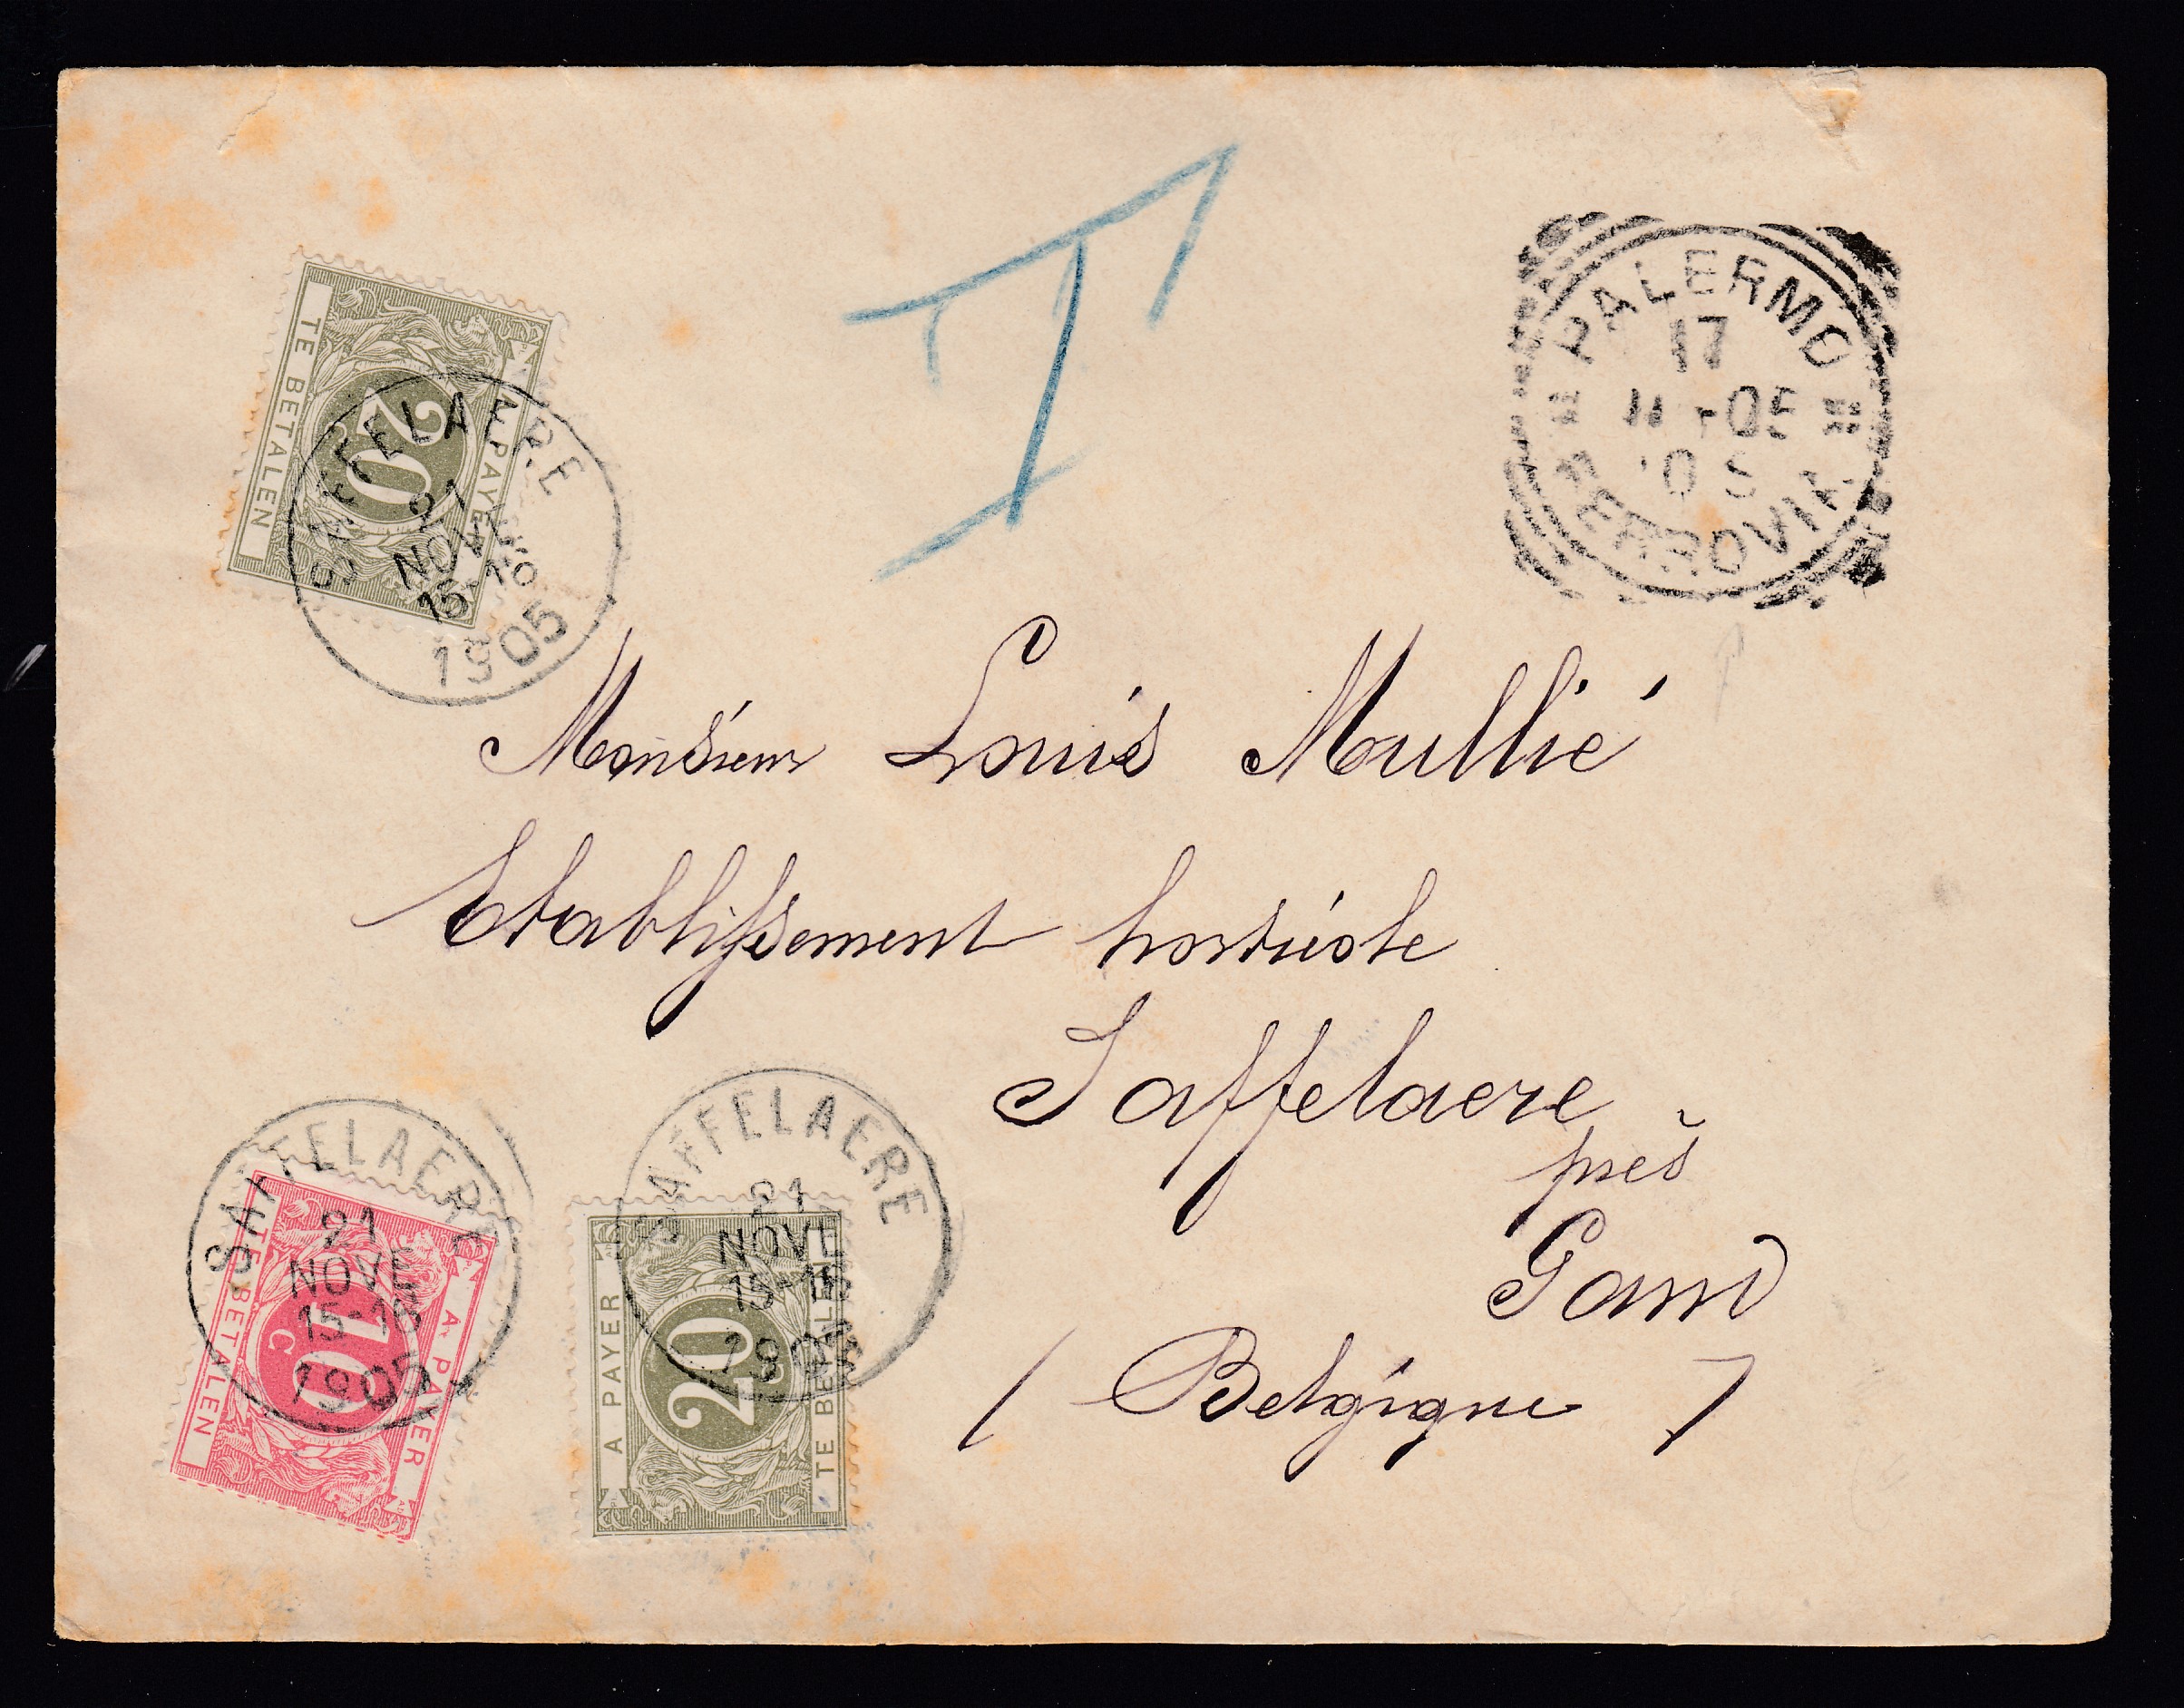 T
PALERMO
17
11-05
10 S
FERROVIA
TE BETALEN
20
A PAYER
SAFFELAERE
21
NOVE
15-16
1905
Monsieur Louis Mullié
Etablissement horticole
Saffelaere
près
Gand
(Belgique)
SAFFELAERE
21
NOVE
15-16
1905
TE BETALEN
10
C
A PAYER
SAFFELAERE
21
NOVE
15-16
1905
A PAYER
20
TE BETALEN